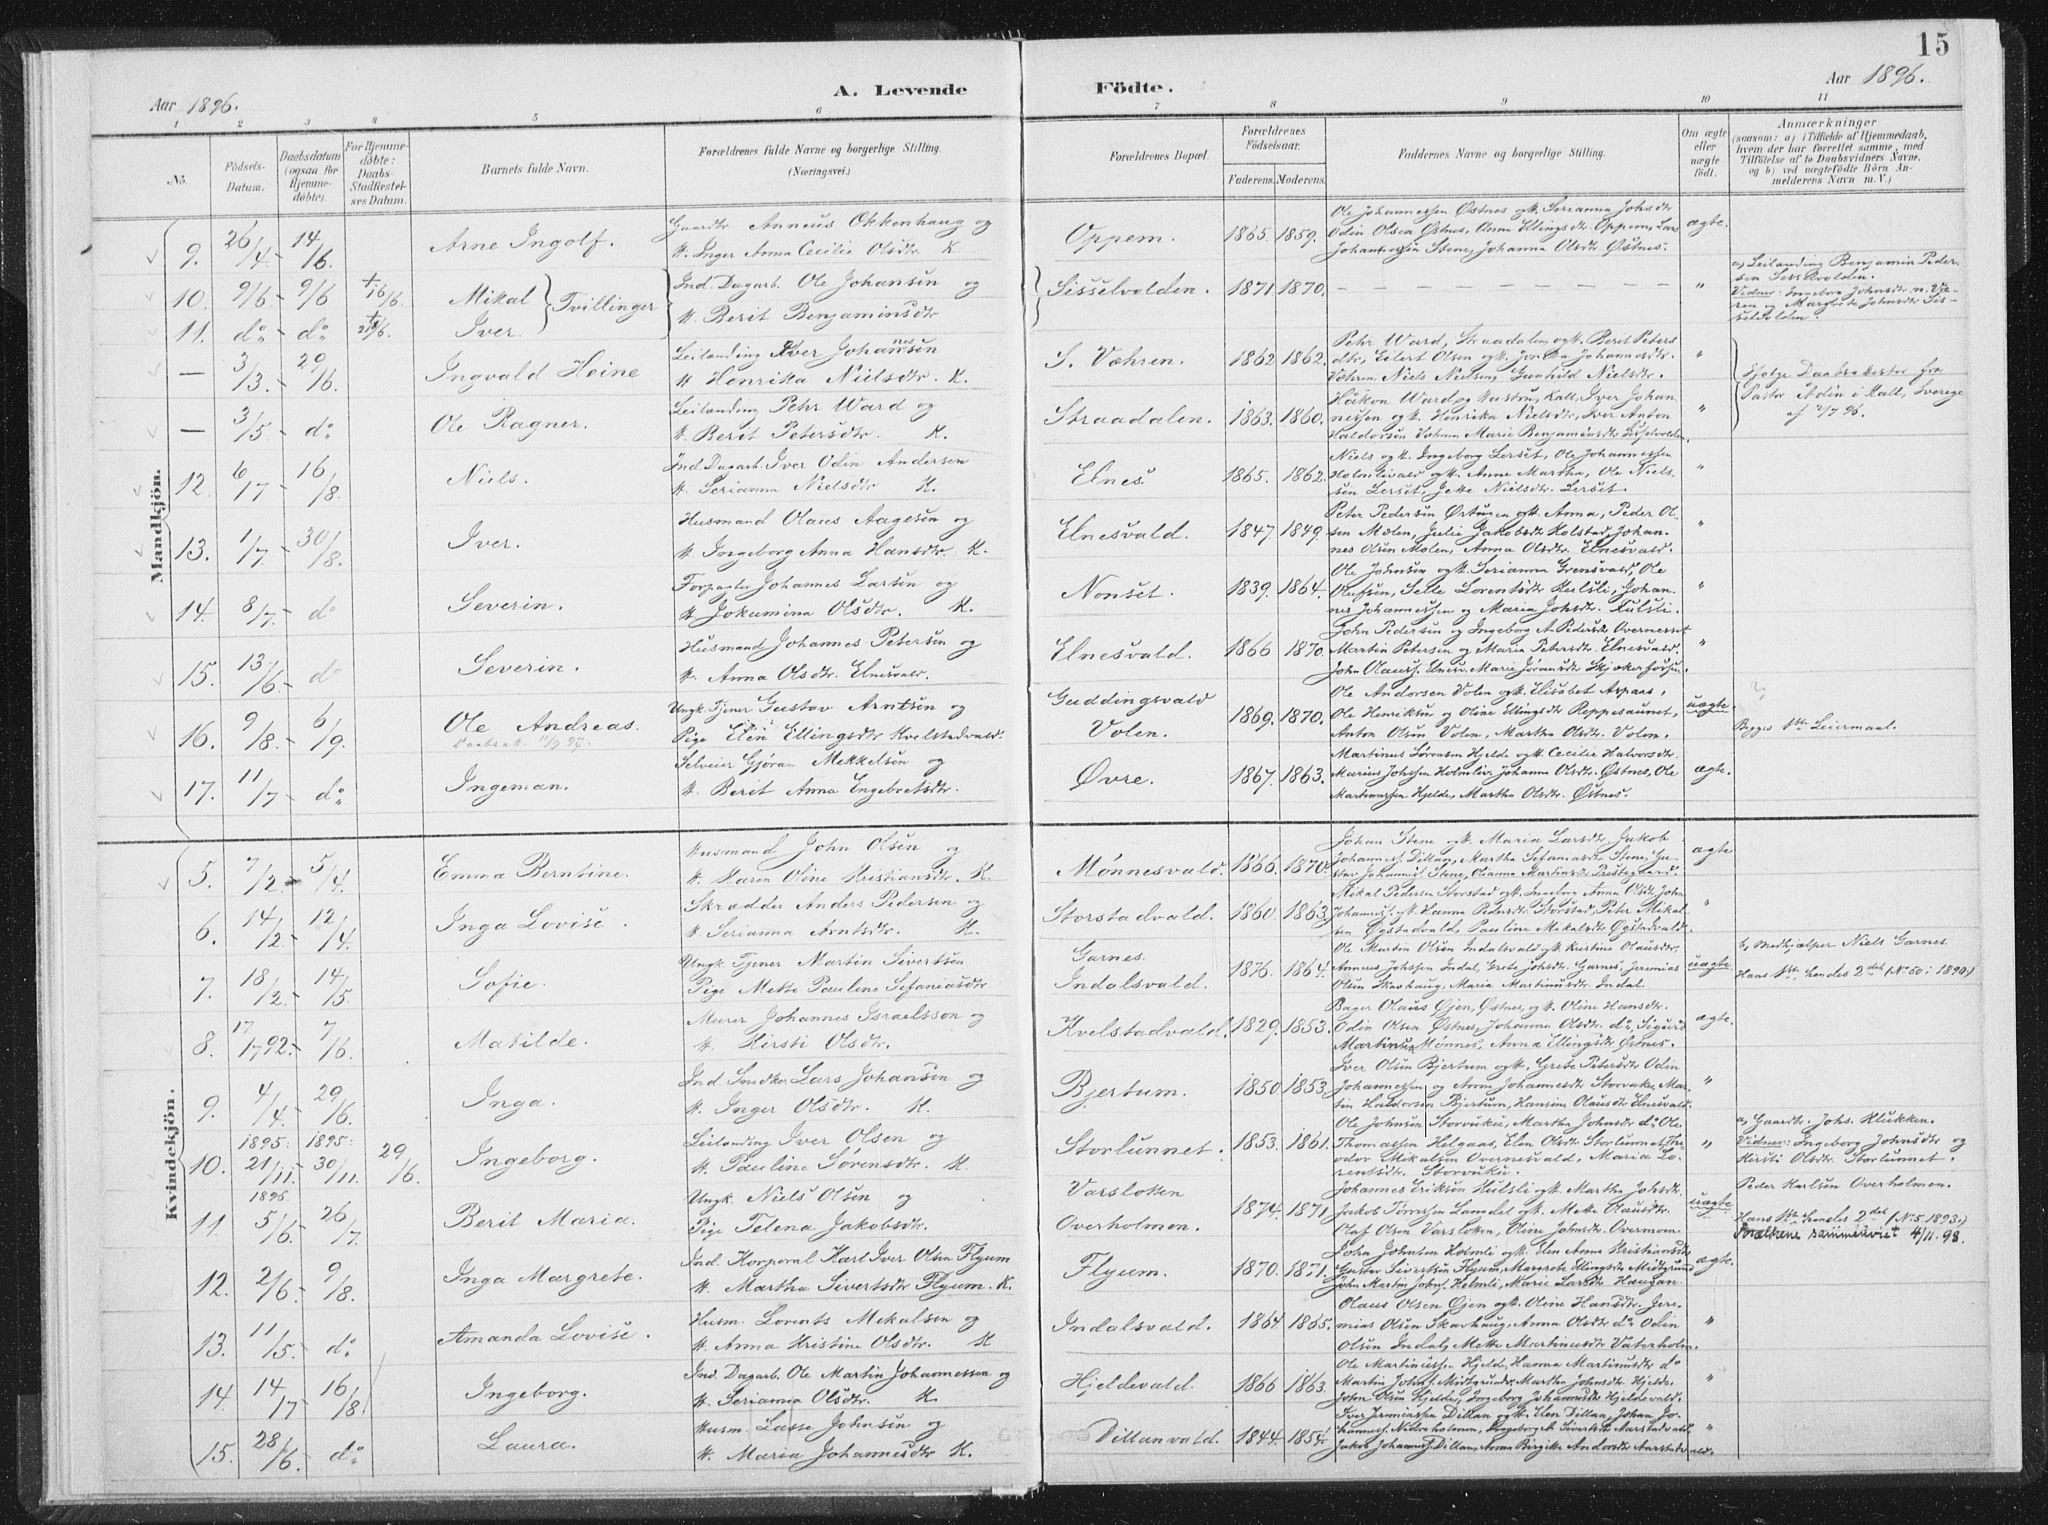 15
Aar 1896.
A. Levende
Födte.
Aar 1896.
1 2 3 4 5 6 7 8 9 10 11
No.
Födsels-Datum.
Daabsdatum (ogsaa for Hjemme-döbte).
For Hjemme-döbte: Daabs-Stadfæstel-ses Datum.
Barnets fulde Navn.
Forældrenes fulde Navne og borgerlige Stilling. (Næringsvei.)
Forældrenes Bopæl.
Forældrenes Födselsaar.
Faderens. Moderens.
Faddernes Navne og borgerlige Stilling.
Om ægte eller uægte födt.
Anmærkninger
(saasom: a) i Tilfælde af Hjemmedaab, hvem der har forrettet samme, med Tilföielse af to Daabsvidners Navne, og b) ved uægtefödte Börn An-melderens Navn m. V.)
Mandkjön.
9. 26/4 - 14/6. Arne Ingolf. Gaardr. Anneus Okkenhaug og
K. Inger Anna Cecilie Olsdtr. K
Oppem. 1865. 1859.
Ole Johannessen Østnes og K. Serianna Johsdtr
Odin Olsen Østnes, Anna Ellingsdtr. Oppem, Lars
Johannessen Stene, Johanna Olsdtr Østnes.
ægte.
10. 9/6 - 9/6 † 16/6. Mikal } Tvillinger
11. do - do Iver.
Ind. Dagarb. Ole Johansen og
K. Berit Benjaminsdtr
Sisselvolden. 1871. 1870. "
a) Leilænding Benjamin Peder-
sen Sisselvolden.
Vidner: Ingeborg Johnsdtr.
— 3/3. - 29/6. Ingvald Heine
Leilænding Iver Johannesen
K Henrika Nielsdtr. K.
S. Vohren. 1862 1862.
Pehr Ward, Straadalen og K. Berit Peters
dtr, Eilert Olsen og K.
Vohren, Niels Nielsen, Gunhild Nielsdtr.
"
Ifølge Daabsattester fra
Pastor Adin i Kall, Sverige
— 3/5 - do Ole Ragner.
Leilænding Pehr Ward og
K. Berit Petersdtr. K.
Straadalen. 1863. 1860.
Håkon Ward og Hustru, Kall, Iver Johan
nessen og K. Henrika Nielsdtr, Iver Anton
Haldorsen Vohren Marie Benjaminsdtr Sisselvolden.
"
12. 6/7 - 16/8. Niels.
Ind. Dagarb. Iver Odin Andersen
K. Serianna Nielsdtr K.
Elnes 1865. 1862.
Niels og K. Ingeborg Lerset, Ole Johannessen
Holmlivald og K. Anne Martha, Ole Niels-
sen Lerset, Jette Nielsdtr. Lerset.
"
13. 1/7 - 30/8. Iver.
Husmand Olaus Aagesen og
K. Ingeborg Anna Hansdtr. K.
Elnesvald. 1847 1849
Peter Pedersen Østunen og K. Anna, Peder Ol-
sen Molen, Julie Jakobsdtr Holstad, Johan-
nes Olsen Molen, Anna Olsdtr. Elnesvald.
"
14. 8/7. - do Severin.
Forpagter Johannes Larsen og
K. Jokumina Olsdtr. K.
Nonset. 1839. 1864.
Ole Johnsen og K. Serianna Grensvald, Ole
Olufsen, Sille Lorentsdtr Hulsli, Johan-
nes Johannessen og Maria Johsdtr. Hulsli.
"
15. 13/6 - do Severin.
Husmand Johannes Petersen og
K. Anna Olsdtr. Elnesvald.
Elnesvald. 1866 1870.
John Pedersen og Ingeborg A. Pedersdtr Overnesset
Martin Petersen og Maria Petersdtr. Elnesvald.
"
16. 9/8. - 6/9. Ole Andreas.
Ungk. Tjener Gustav Arntsen og
Pige Elen Ellingsdtr Kvelstadvald.
Guddingsvald
Volen. 1869. 1870.
Ole Andorsen Volen og K. Elisabet Aspaas,
Ole Henriksen og Oline Ellingsdtr Reppesaunet,
Anton Olsen Volen, Martha Olsdtr. Volen.
uægte.
Begges 1ste Leiermaal.
17. 11/7 - do Ingeman.
Selveier Gjøran Mekkelsen og
K. Berit Anna Engebretsdtr.
Øvre. 1867. 1863.
Martinus Sørensen Hjelde og K. Cecilie Halvorsdtr.
Marius Johssen Holmlie, Johanna Olsdtr. Østnes, Ole
Martinussen Hjelde, Martha Olsdtr. Østnes.
ægte.
Kvindekjön.
5. 7/2 - 5/4. Emma Berntine.
Husmand John Olsen og
K. Karen Oline Kristiansdtr. K.
Mønnesvald. 1866. 1870.
Johan Stene og K. Maria Larsdtr, Jakob
Johannes. Dillan, Martha Sefaniasdtr. Stene, Gu-
stav Johannes. Stene, Olianna Martinusdtr Prestegaard.
ægte
6. 14/2 - 12/4. Inga Lovise.
Skrædder Anders Pedersen og
K. Serianna Arntsdtr. K.
Storstadvald. 1860 1863.
Mikal Pedersen Storstad og K. Ingeborg Anna Olsdtr John
Johannes. og K. Hanna Pedersdtr. Storstad, Peter Mikal-
sen Øgstadvald, Pauline Mikalsdtr Øgstadvald.
"
7. 18/2 - 14/5 Sofie.
Ungk. Tjener Martin Sivertsen
Pige Mette Pauline Sefaniasdtr
Garnes.
Indalsvald. 1876. 1864.
Ole Martin Olsen Indalsvald og K. Kristine Olausdtr,
Anneus Johssen Indal, Grete Johsdtr. Garnes, Jeremias
Olsen Skavhaug, Maria Martinusdtr Indal.
uægte
b) Medhjælper Niels Garnes.
Hans 1ste, hendes 2det (No 60 i 1890.)
8. 17/7 92. - 7/6. Matilde.
Murer Johannes Israelsson og
K. Kirsti Olsdtr.
Kvelstadvald. 1829. 1853.
Bager Olaus Gjen, Østnes, og K. Oline Hansdtr.
Odin Olsen Østnes, Johanna Olsdtr. do, Sigurd
Martinsen Mønnes, Anna Ellingsdtr Østnes.
ægte.
9. 4/4. - 29/6. Inga.
Ind. Snedker Lars Johansen og
K. Inger Olsdtr. K.
Bjertum. 1850 1853.
Iver Olsen Bjertum og K. Grete Petersdtr Odin
Johannessen og Anne Johannesdtr Storvuku, Mar-
tin Haldorsen Bjertum, Hansine Olausdtr Elnesvald.
"
10. 1895: 21/11. - 1895: 30/11. 29/6. Ingeborg.
Leilænding Iver Olsen og
K. Pauline Sørensdtr. K
Storlunnet. 1853. 1861.
Ole Johnsen Storvuku, Martha Johnsdtr do Ole
Thomassen Helgaas, Elen Olsdtr Storlunnet,
Mikalsen Overnesvald, Maria Lo-
rentsdtr. Storvuku.
"
a, Gaardbr. Johs. Klukken.
Vidner: Ingeborg Johnsdtr og
Kirsti Olsdtr. Storlunnet.
11. 1896 5/6. - 26/7. Berit Maria.
Ungk. Niels Olsen og
Pige Telena Jakobsdtr.
Varslotten
Overholmen. 1874. 1871
Johannes Eriksen Hulsli og K. Martha Johsdtr.
Jakob Tomessen Landet og K. Mette Olausdtr.
Olaf Olsen Varslotten, Oline Johnsdtr. Overmoen
uægte
Peder Karlsen Overholmen.
Hans 1ste hendes 2det (No 5 1893.)
Forældrene sammenviet 4/11. 98.
12. 2/6. - 9/8. Inga Margrete.
Ind. Korporal Karl Iver Olsen Flyum
K. Martha Sivertsdtr Flyum. K.
Flyum. 1870. 1871.
John Johnsen Holmli og K. Elen Anna Kristiansdtr
Gustav Sivertsen Flyum, Margrete Ellingsdtr Midtgrund
John Martin Johns. Holmli, Marie Larsdtr Haugan
ægte.
13. 11/5. - do Amanda Lovise.
Husm. Lorents Mikalsen og
K. Anna Kristine Olsdtr. K
Indalsvald. 1864 1865.
Olaus Olsen Gjen og K. Oline Hansdtr. Jere-
mias Olsen Skavhaug, Anna Olsdtr do Odin
Olsen Indal, Mette Martinusdtr Vaterholm.
"
14. 14/7 - 16/8. Ingeborg.
Ind. Dagarb. Ole Martin Johannessen og
K. Serianna Olsdtr. K.
Hjeldevald. 1866 1863.
Ole Martinussen Hjeld, Hanna Martinusdtr do
Martin Johns. Midtgrund, Martha Johnsdtr. Hjelde,
John Olsen Hjelde, Ingeborg Johannesdtr Hjeldevald.
"
15. 28/6 - do Laura.
Husm. Lasse Johnsen og
K. Maria Johannesdtr K.
Dillanvald. 1844. 1854.
Iver Jeremiassen Dillan og K. Elen Dillan, Johan Jo-
hannes. Nibroholmen, Ingeborg A. Sivertsdtr Aarstadvald,
Jakob Johannes. Dillan, Anna Birgitte Andorsdtr Aarstadvald.
"